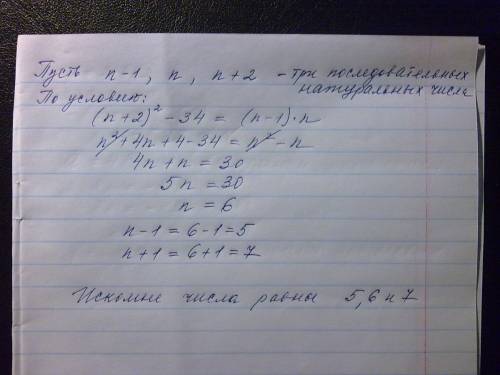 Пусть n-1, n, n+2 - три последовательных
натуральных числа
По условию:
(n+2)² - 34 = (n-1)·n
n²+4n+4-34 = n² - n
4n+n = 30
5n = 30
n = 6
n-1 = 6-1=5
n+1 = 6+1=7
Искомые числа равны 5,6 и 7